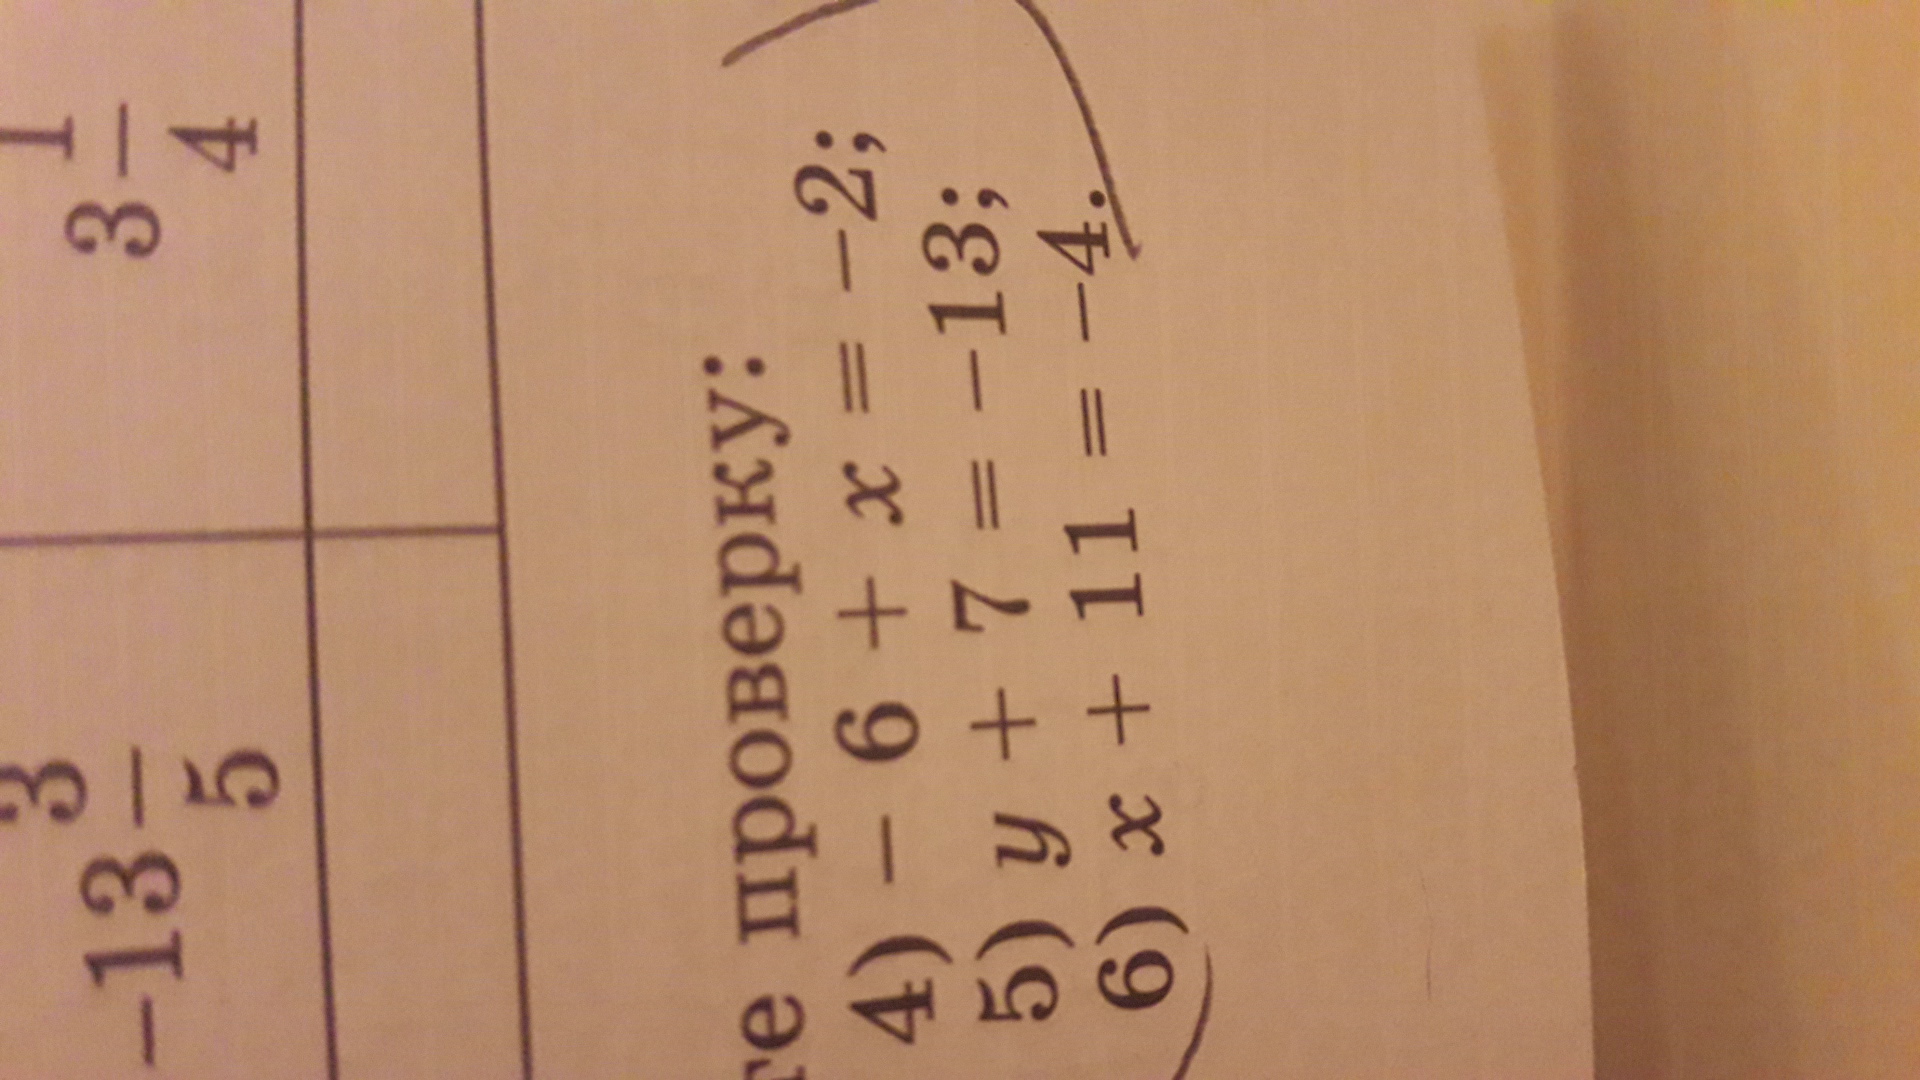 -13 3/5 3 1/4
те проверку:
4) − 6 + x = −2;
5) y + 7 = −13;
6) x + 11 = −4.